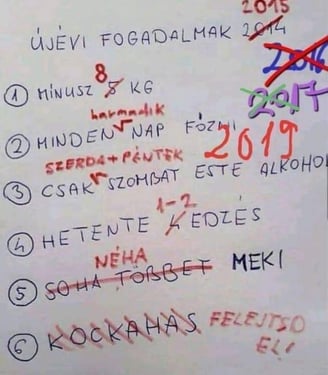 2015
ÚJÉVI FOGADALMAK 2014
2016
2017
8
① MÍNUSZ 5 KG
harmadik
② MINDEN NAP FŐZNI
2019
SZERDA + PÉNTEK
③ CSAK SZOMBAT ESTE ALKOHOL
1-2
④ HETENTE 4 EDZÉS
NÉHA
⑤ SOHA TÖBBET MEKI
⑥ KOCKAHAS FELEJTSD
EL!